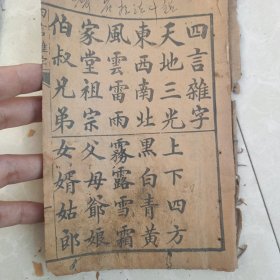 四言雜字
天地三光 上下四方
東西南北 黑白青黃
風雲雷雨 霧露雪霜
家堂祖宗 父母爺娘
伯叔兄弟 女婿姑郎